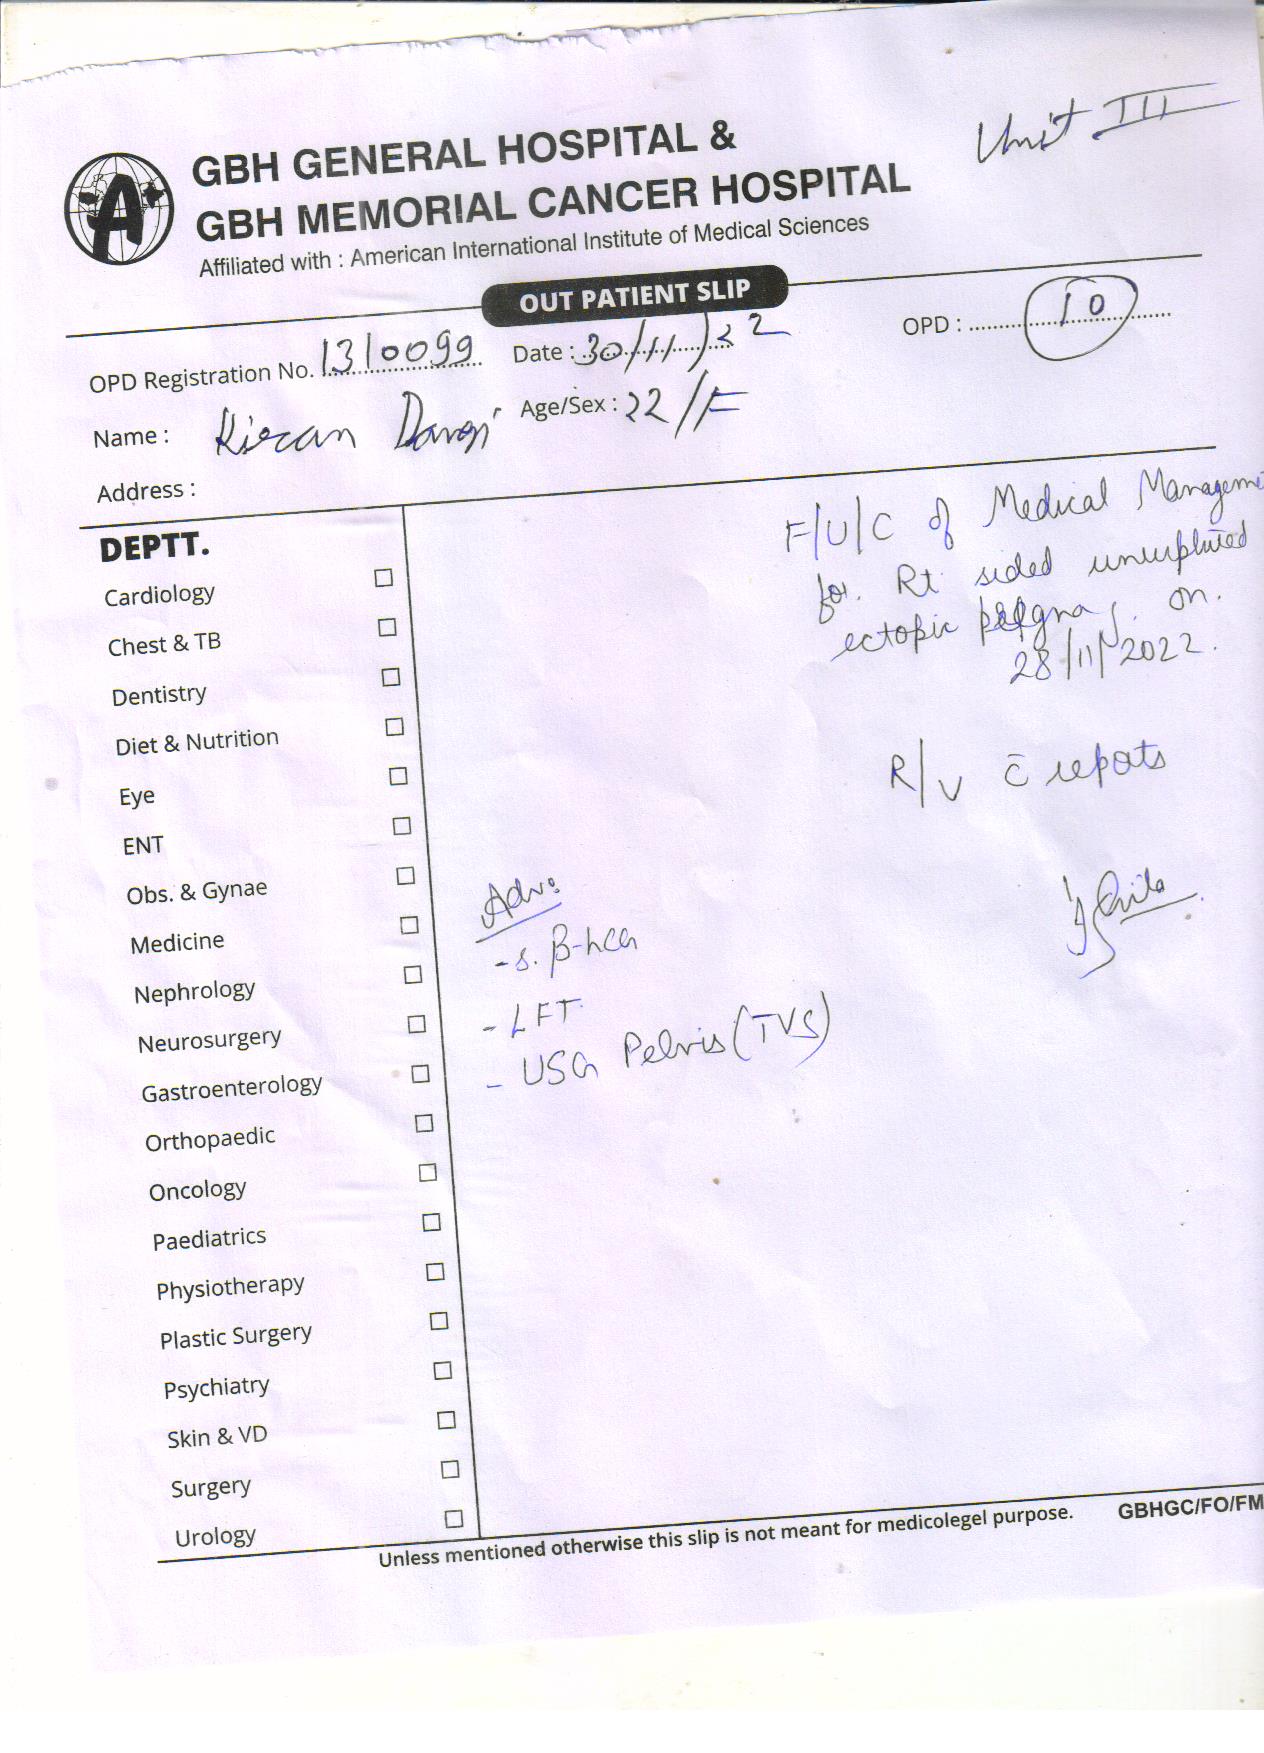 Unit III
GBH GENERAL HOSPITAL &
GBH MEMORIAL CANCER HOSPITAL
Affiliated with : American International Institute of Medical Sciences
OUT PATIENT SLIP
OPD Registration No. 1310099 Date : 30/11/22 OPD : 10
Name : Kiran Dangi Age/Sex : 22/F
Address :
DEPTT.
Cardiology
Chest & TB
Dentistry
Diet & Nutrition
Eye
ENT
Obs. & Gynae
Medicine
Nephrology
Neurosurgery
Gastroenterology
Orthopaedic
Oncology
Paediatrics
Physiotherapy
Plastic Surgery
Psychiatry
Skin & VD
Surgery
Urology
F/U/C of Medical Manageme
for Rt sided unruptured
ectopic on.
28/11/2022.
R/v c̄ repots
Adv:
- s. β-hCG
- LFT
- USG Pelvis (TVS)
Unless mentioned otherwise this slip is not meant for medicolegel purpose. GBHGC/FO/FM